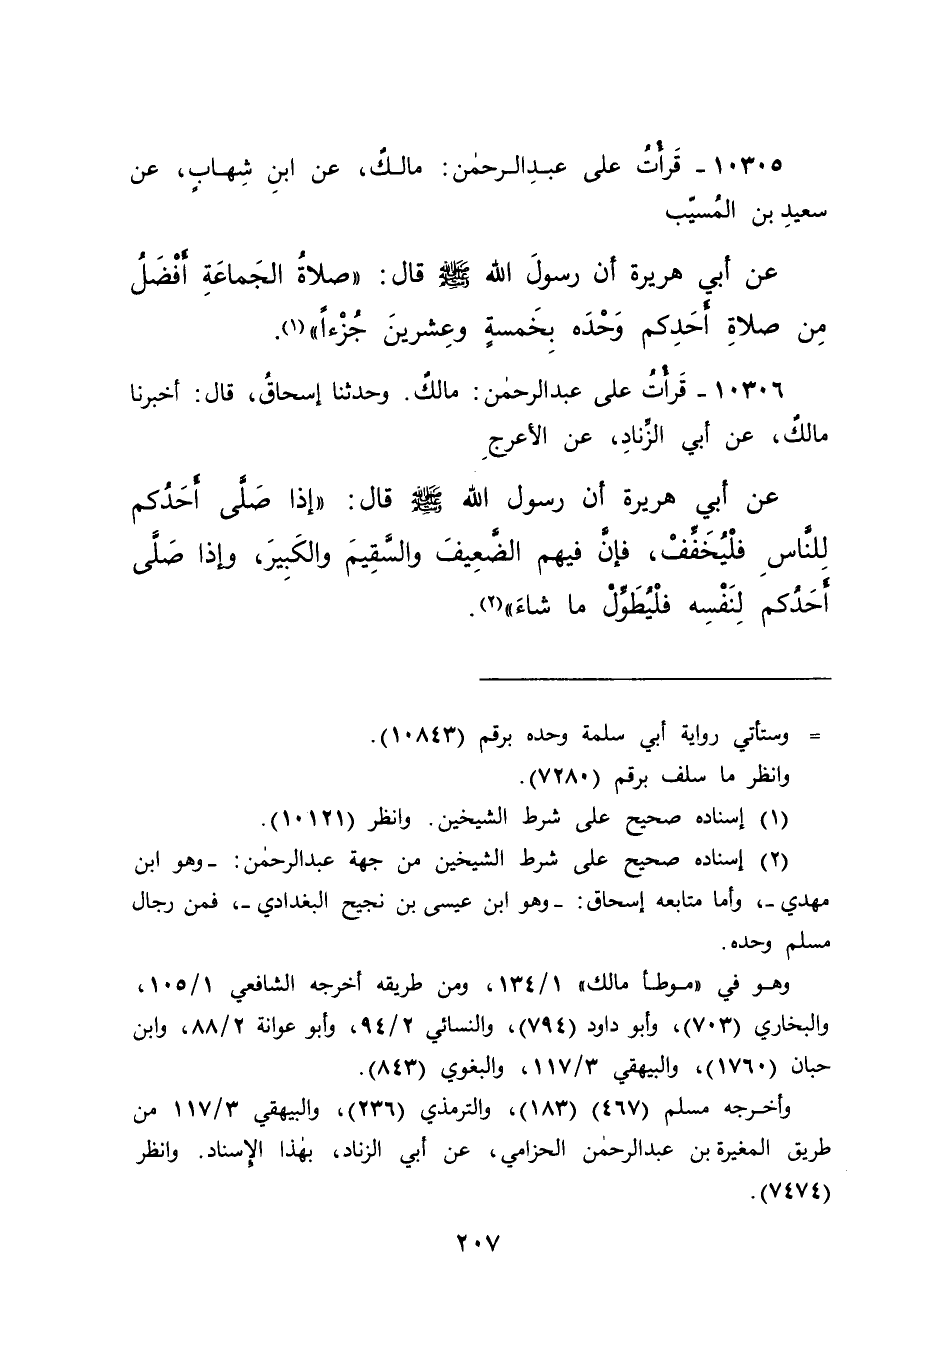 ١٠٣٠٥ - قَرأْتُ على عبدِالرحمٰن: مالكٌ، عن ابنِ شِهابٍ، عن
سعيدِ بن المُسيّب
عن أبي هريرة أن رسولَ الله ﷺ قال: «صلاةُ الجَماعَةِ أَفْضَلُ
مِن صلاةِ أَحَدِكم وَحْدَه بِخَمسةٍ وعِشرينَ جُزْءاً»(١).
١٠٣٠٦ - قَرأْتُ على عبدالرحمٰن: مالكٌ. وحدثنا إسحاقُ، قال: أخبرنا
مالكٌ، عن أبي الزِّنادِ، عن الأعرجِ
عن أبي هريرة أن رسول الله ﷺ قال: «إذا صَلَّى أَحَدُكم
لِلنَّاسِ فلْيُخَفِّفْ، فإنَّ فيهم الضَّعِيفَ والسَّقِيمَ والكَبِيرَ، وإذا صَلَّى
أَحَدُكم لِنَفْسِه فلْيُطَوِّلْ ما شاءَ»(٢).
= وستأتي رواية أبي سلمة وحده برقم (١٠٨٤٣).
وانظر ما سلف برقم (٧٢٨٠).
(١) إسناده صحيح على شرط الشيخين. وانظر (١٠١٢١).
(٢) إسناده صحيح على شرط الشيخين من جهة عبدالرحمٰن: -وهو ابن
مهدي -، وأما متابعه إسحاق: -وهو ابن عيسى بن نجيح البغدادي -، فمن رجال
مسلم وحده.
وهو في «موطأ مالك» ١٣٤/١، ومن طريقه أخرجه الشافعي ١٠٥/١،
والبخاري (٧٠٣)، وأبو داود (٧٩٤)، والنسائي ٩٤/٢، وأبو عوانة ٨٨/٢، وابن
حبان (١٧٦٠)، والبيهقي ١١٧/٣، والبغوي (٨٤٣).
وأخرجه مسلم (٤٦٧) (١٨٣)، والترمذي (٢٣٦)، والبيهقي ١١٧/٣ من
طريق المغيرة بن عبدالرحمٰن الحزامي، عن أبي الزناد، بهٰذا الإسناد. وانظر
(٧٤٧٤).
٢٠٧